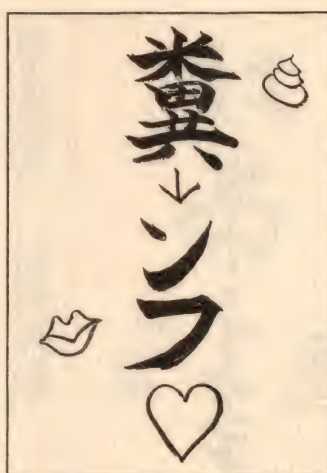 糞
↓
ンフ
♡